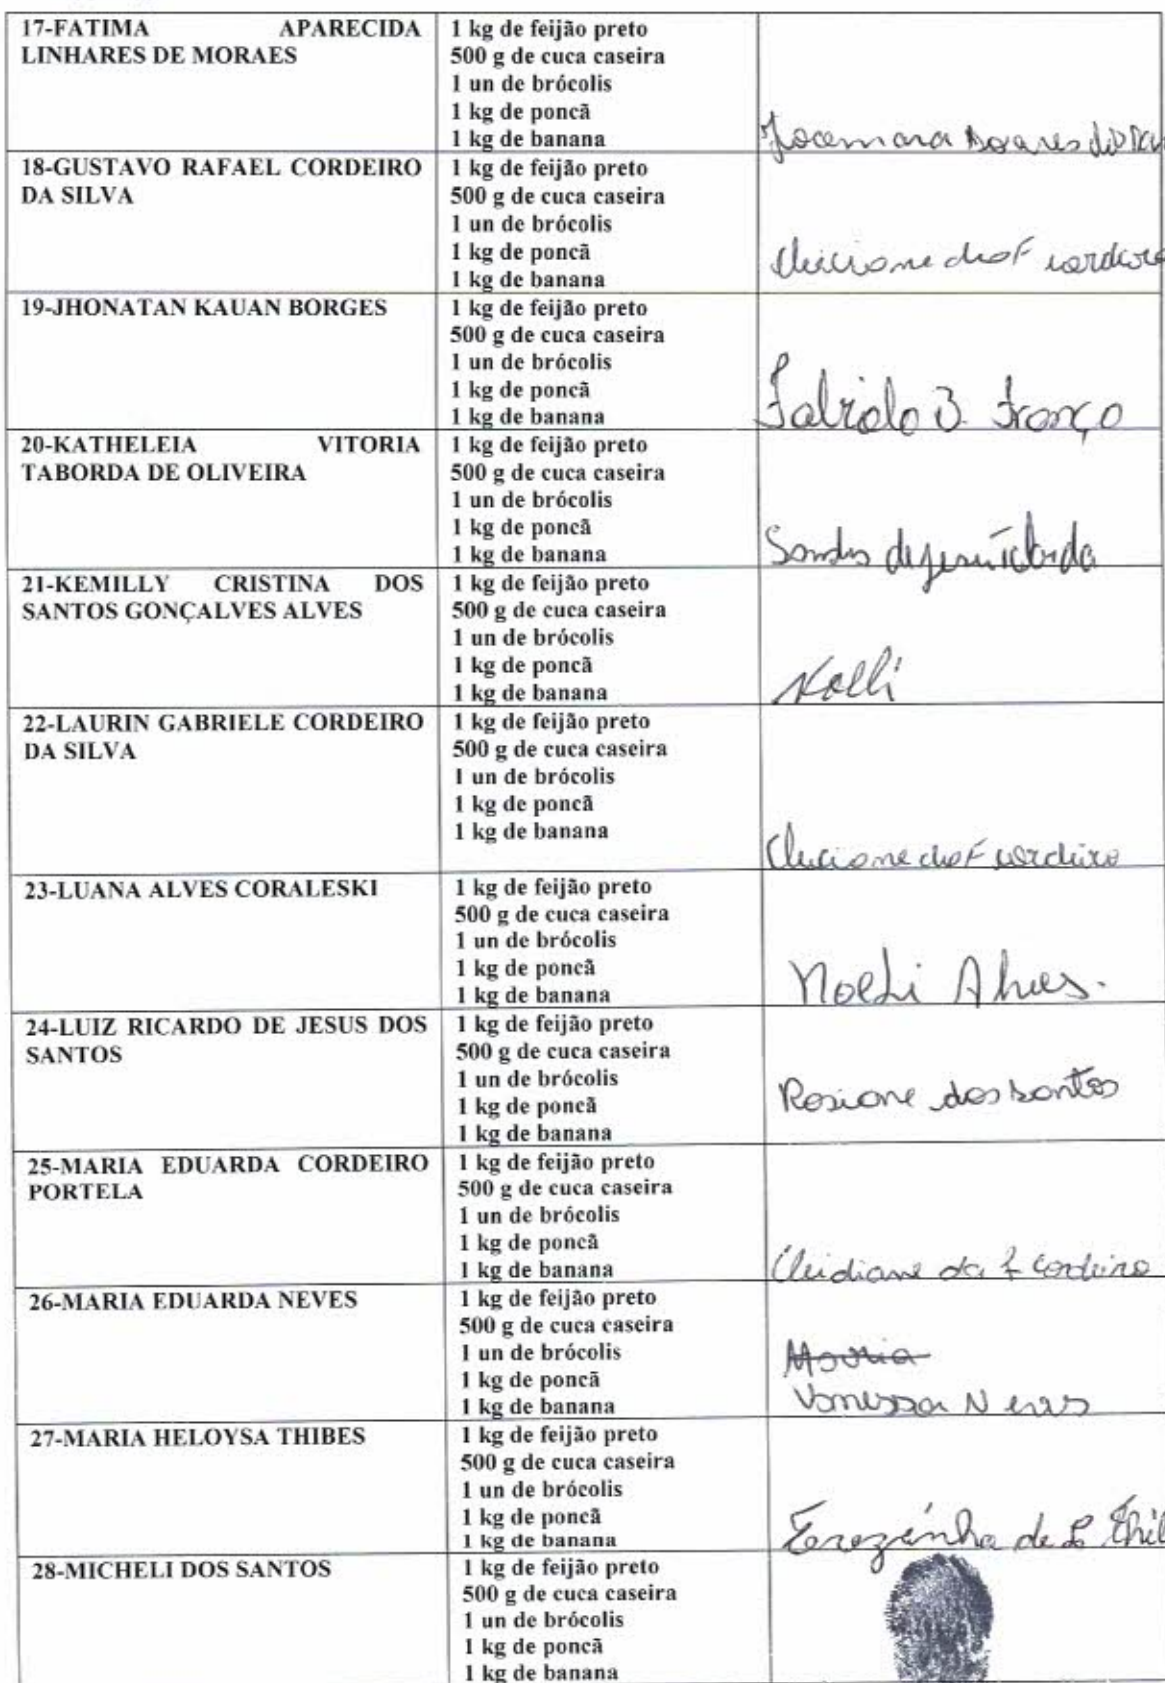 17-FATIMA APARECIDA
LINHARES DE MORAES
1 kg de feijão preto
500 g de cuca caseira
1 un de brócolis
1 kg de poncã
1 kg de banana
18-GUSTAVO RAFAEL CORDEIRO
DA SILVA
1 kg de feijão preto
500 g de cuca caseira
1 un de brócolis
1 kg de poncã
1 kg de banana
19-JHONATAN KAUAN BORGES
1 kg de feijão preto
500 g de cuca caseira
1 un de brócolis
1 kg de poncã
1 kg de banana
20-KATHELEIA VITORIA
TABORDA DE OLIVEIRA
1 kg de feijão preto
500 g de cuca caseira
1 un de brócolis
1 kg de poncã
1 kg de banana
21-KEMILLY CRISTINA DOS
SANTOS GONÇALVES ALVES
1 kg de feijão preto
500 g de cuca caseira
1 un de brócolis
1 kg de poncã
1 kg de banana
22-LAURIN GABRIELE CORDEIRO
DA SILVA
1 kg de feijão preto
500 g de cuca caseira
1 un de brócolis
1 kg de poncã
1 kg de banana
23-LUANA ALVES CORALESKI
1 kg de feijão preto
500 g de cuca caseira
1 un de brócolis
1 kg de poncã
1 kg de banana
Noeli Alves.
24-LUIZ RICARDO DE JESUS DOS
SANTOS
1 kg de feijão preto
500 g de cuca caseira
1 un de brócolis
1 kg de poncã
1 kg de banana
Rosiane dos Santos
25-MARIA EDUARDA CORDEIRO
PORTELA
1 kg de feijão preto
500 g de cuca caseira
1 un de brócolis
1 kg de poncã
1 kg de banana
Cleidiane da F Cordeiro
26-MARIA EDUARDA NEVES
1 kg de feijão preto
500 g de cuca caseira
1 un de brócolis
1 kg de poncã
1 kg de banana
Maria
Vanessa Neves
27-MARIA HELOYSA THIBES
1 kg de feijão preto
500 g de cuca caseira
1 un de brócolis
1 kg de poncã
1 kg de banana
Terezinha de
28-MICHELI DOS SANTOS
1 kg de feijão preto
500 g de cuca caseira
1 un de brócolis
1 kg de poncã
1 kg de banana